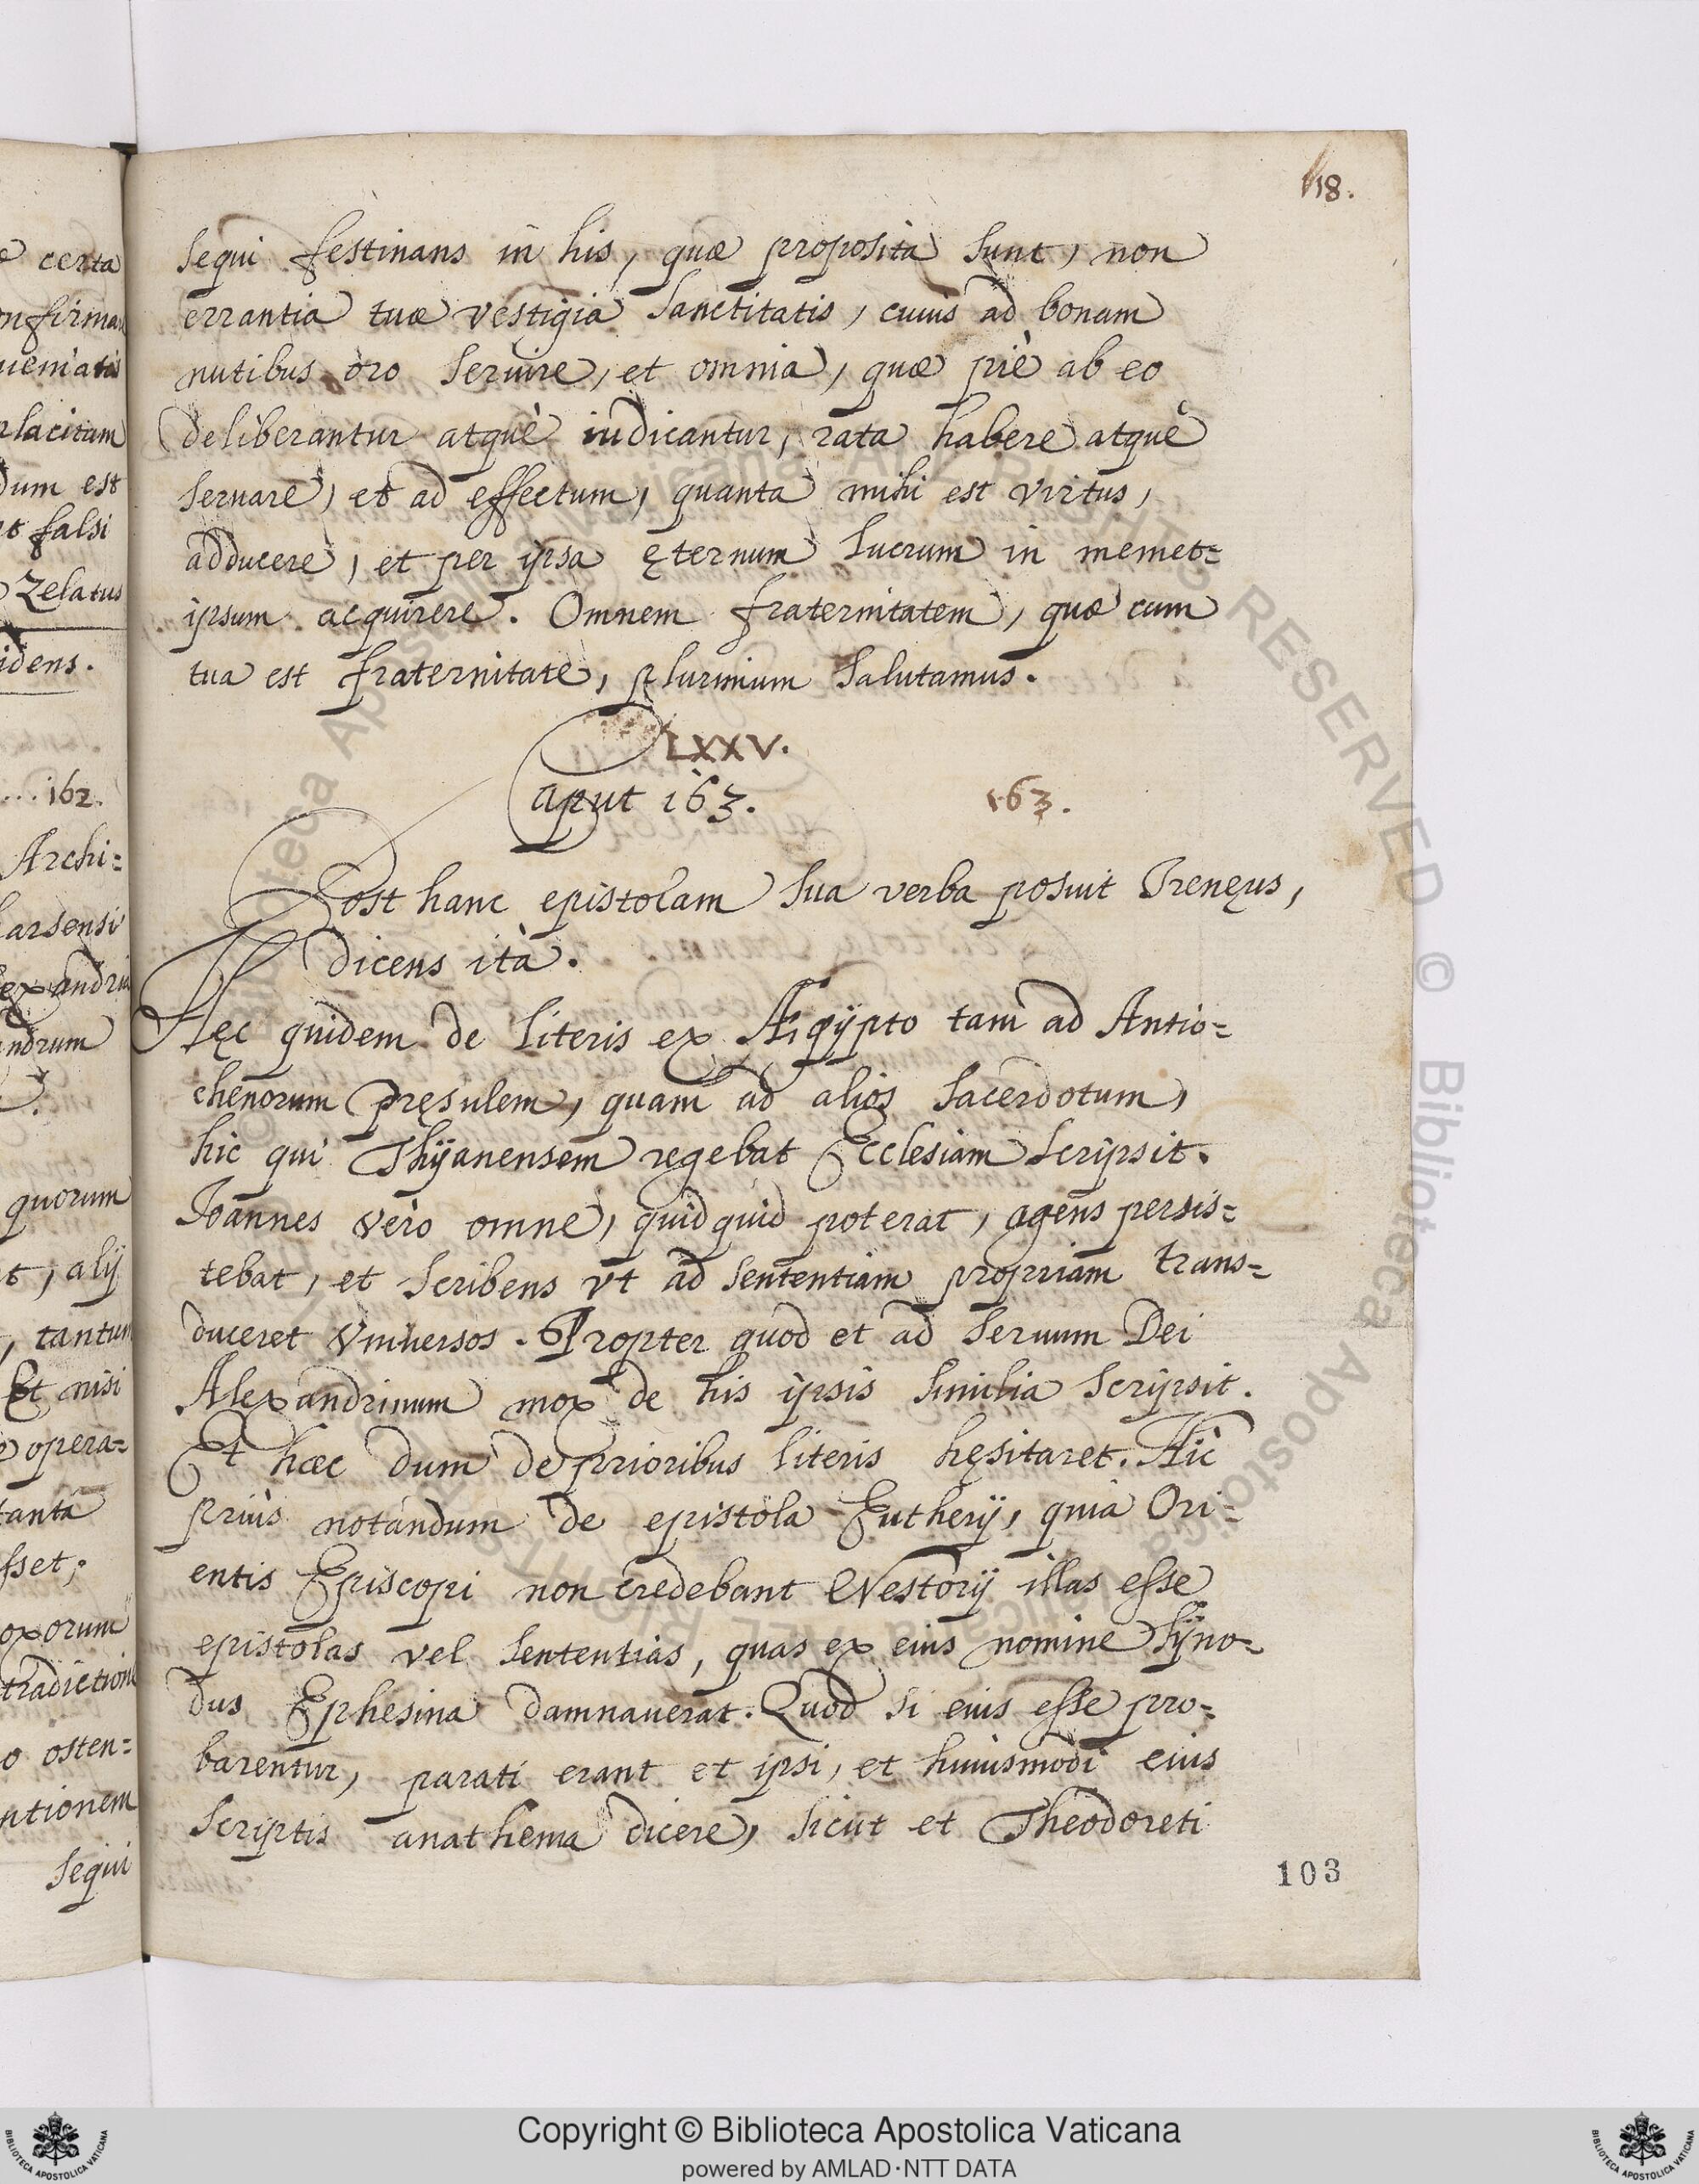 118.
sequi festinans in his, quæ proposita sunt, non
errantia tuæ vestigia Sanctitatis, cuius ad bonum
nutibus oro seruire, et omnia, quæ piè ab eo
deliberantur atquè iudicantur, rata habere atquè
seruare, et ad effectum, quanta mihi est virtus,
adducere, et per ipsa ęternum lucrum in memet=
ipsum acquirere. Omnem fraternitatem, quæ cum
tua est fraternitate, plurimum salutamus.
LXXV.
Caput 163. 163.
Post hanc epistolam sua verba posuit Irenęus,
dicens ità.
Hęc quidem de literis ex Ægÿpto tam ad Antio=
chenorum Pręsulem, quam ad alios Sacerdotum,
hic qui Thÿanensem regebat Ecclesiam scripsit.
Ioannes vero omne, quidquid poterat, agens persis=
tebat, et scribens vt ad sententiam propriam trans=
duceret Vniuersos. Propter quod et ad seruum Dei
Alexandrinum mox de his ipsis similia scripsit.
Et hæc dum de prioribus literis hęsitaret. Hic
priùs notandum de epistola Eutherij, quia Ori=
entis Episcopi non credebant Nestorij illas esse
epistolas vel sententias, quas ex eius nomine Sÿno=
dus Ephesina damnauerat. Quod si eius esse pro=
barentur, parati erant et ipsi, et huiusmodi eius
scriptis anathema dicere, sicut et Theodoreti
103
certa
placitam
dum est
falsi
Zelatus
idens.
...162.
Archi=
quorum
t, alij
, tantum
Et nisi
opera=
tanta
sset;
o osten=
ntionem
sequi
Copyright © Biblioteca Apostolica Vaticana
powered by AMLAD·NTT DATA